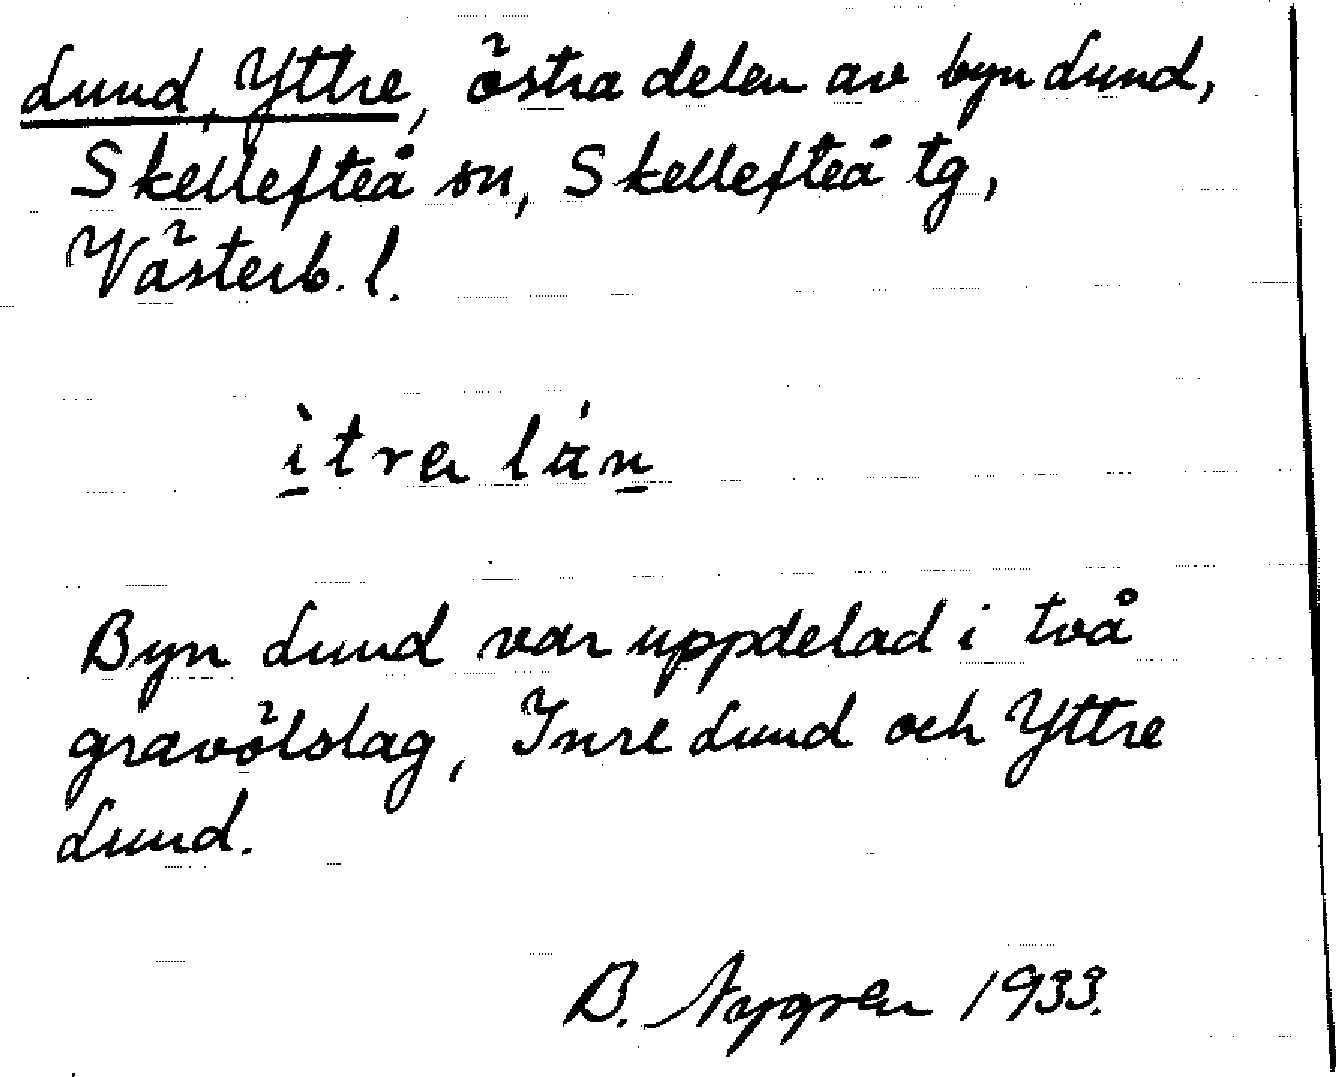 Lund, Yttre, östra delen av byn Lund,
Skellefteå sn, Skellefteå tg,
Västerb. l.
ìtra lán
Byn Lund var uppdelad i två
gravölslag, Inre Lund och Yttre
Lund.
B. Nygren 1933.